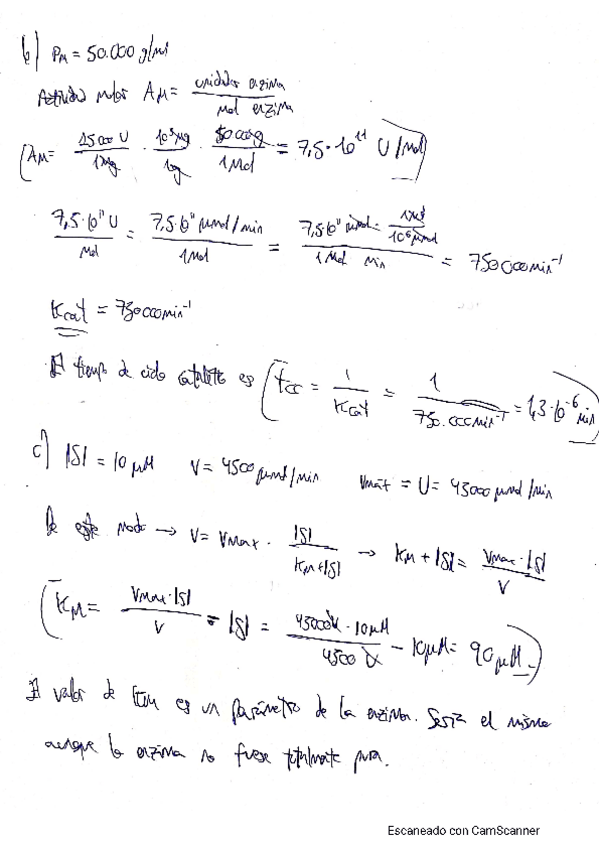 b) PM = 50.000 g/mol
Actividad molar AM = unidades enzima / mol enzima
AM = 15000 U / 1 mg · 10³ mg / 1 g · 50000 g / 1 Mol = 7,5·10¹¹ U/Mol
7,5·10¹¹ U / Mol = 7,5·10¹¹ μmol/min / 1 Mol = 7,5·10¹¹ μmol · 1 Mol / 10⁶ μmol / 1 Mol min = 750000 min⁻¹
Kcat = 750000 min⁻¹
El tiempo de ciclo catalítico es tcc = 1 / Kcat = 1 / 750.000 min⁻¹ = 1,3·10⁻⁶ min
c) |S| = 10 μM V = 4500 μmol/min Vmax = U = 45000 μmol/min
De este modo → V = Vmax · |S| / KM+|S| → KM + |S| = Vmax·|S| / V
KM = Vmax·|S| / V - |S| = 45000 U · 10 μM / 4500 U - 10 μM = 90 μM
El valor de km es un parámetro de la enzima. Sería el mismo
aunque la enzima no fuese totalmente pura.
Escaneado con CamScanner